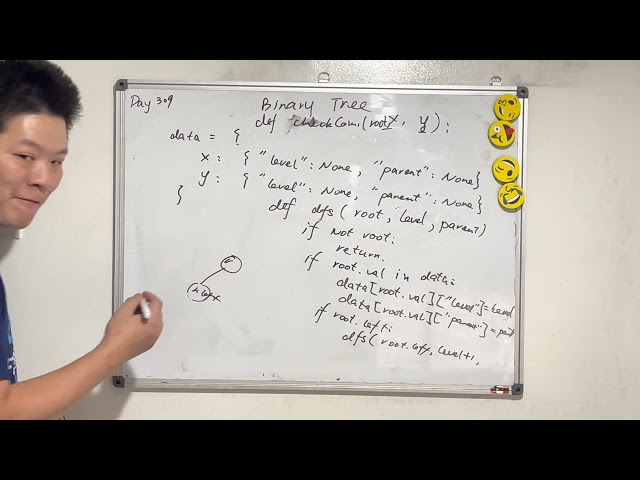 Day 309
Binary Tree
def checkCousi(root, x, y):
data = {
x: {"level": None, "parent": None}
y: {"level": None, "parent": None}
}
def dfs(root, level, parent)
if not root:
return.
if root.val in data:
data[root.val]["level"]=level
data[root.val]["parent"]=
if root.left:
dfs(root.left, level+1,